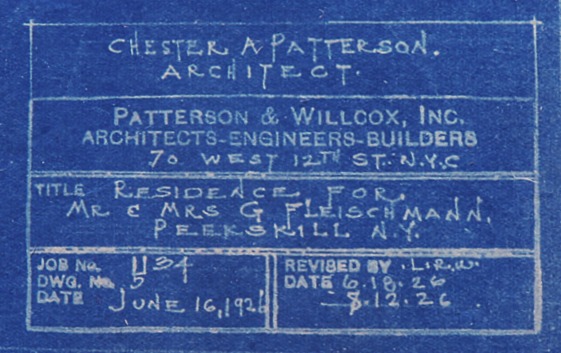 CHESTER A PATTERSON.
ARCHITECT.
PATTERSON & WILLCOX, INC.
ARCHITECTS-ENGINEERS-BUILDERS
70 WEST 12TH ST. N.Y.C
TITLE RESIDENCE FOR
MR & MRS G FLEISCHMANN.
PEEKSKILL N.Y.
JOB No. 1134
DWG. No. 5
DATE JUNE 16, 1926
REVISED BY L.R.W.
DATE 6.18.26
8.12.26